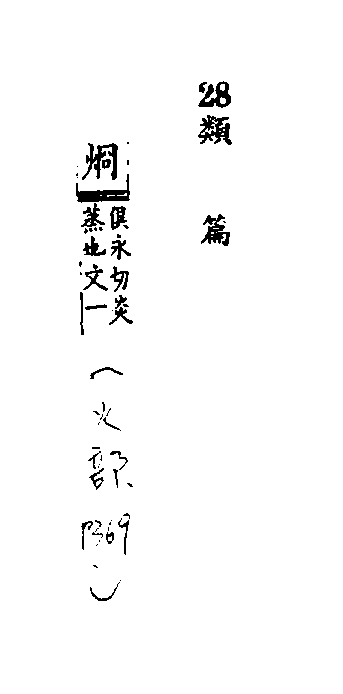 28類篇
烱
俱永切炎
蒸也文一
(火部 P369)